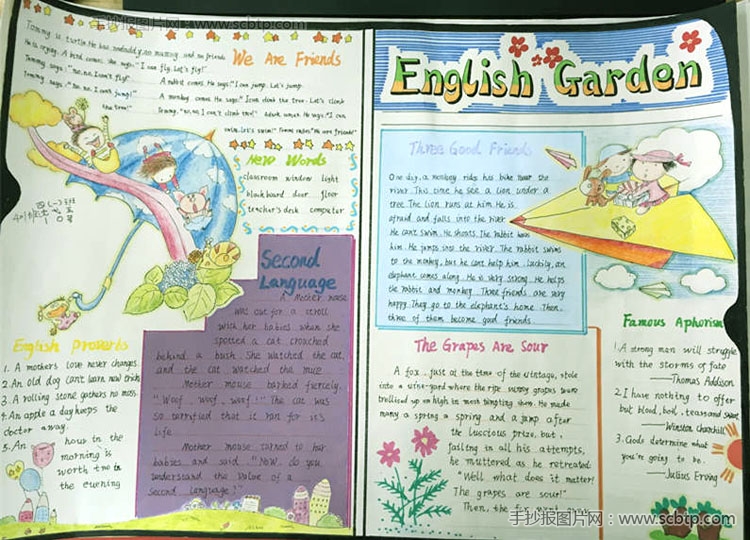 手抄报图片网:www.scbtp.com
We Are Friends
Tommy is turtle. He has no daddy, no mummy and no friends
He is crying. A bird comes. She says: "I can fly. Let's fly!"
Tommy says: "No, no, I can't fly!" A rabbit comes. He says: "I can jump. Let's jump.
Tommy says: "No, no, I can't jump!" A monkey comes. He says: "I can climb the tree. Let's climb
the tree!" Tommy: "no, no, I can't climb tree!" A duck comes. He says: "I can
swim. Let's swim!" Tommy smiles. "We are friends!"
New Words
classroom window light
blackboard door floor
teacher's desk computer
Second
Language
A Mother mouse
was out for a stroll
with her babies when she
spotted a cat crouched
behind a bush. She watched the cat,
and the cat watched the mice
Mother mouse barked fiercely.
"Woof, woof, woof!" The cat was
so terrified that it ran for it's
life
Mother mouse turned to her
babies and said. "Now, do you
understand the value of a
second language?"
English proverbs
1. A mothers love never changes.
2. An old dog can't learn new tricks
3. A rolling stone gathers no moss.
4. An apple a day keeps the
doctor away.
5. An hour in the
morning is
worth two in
the evening
English Garden
Three Good Friends
One day, a monkey rids his bike near the
river. This time he see a lion under a
tree. The lion runs at him. He is
afraid and falls into the river.
He can't swim. He shouts. The rabbit hears
him. He jumps into the river. The rabbit swims
to the monkey, but he can't help him. Luckily, an
elephant comes along. He is very strong. He helps
the rabbit and monkey. Three friends are very
happy. They go to the elephant's home. Then,
three of them become good friends.
The Grapes Are Sour
A fox, just at the time of the vintage, stole
into a vine-yard where the ripe sunny grapes were
trellised up on high in most tempting show. He made
many a spring a spring and a jump after
the luscious prize, but,
failing in all his attempts,
he muttered as he retreated
"Well what does it matter!
The grapes are sour!"
Famous Aphorism
1. A strong man will struggle
with the storms of fate
—Thomas Addison
2. I have nothing to offer
but blood, boil, tears and sweat
—Winston Churchill
3. Gods determine what
you're going to be.
—Julius Erving
手抄报图片网:www.scbtp.com